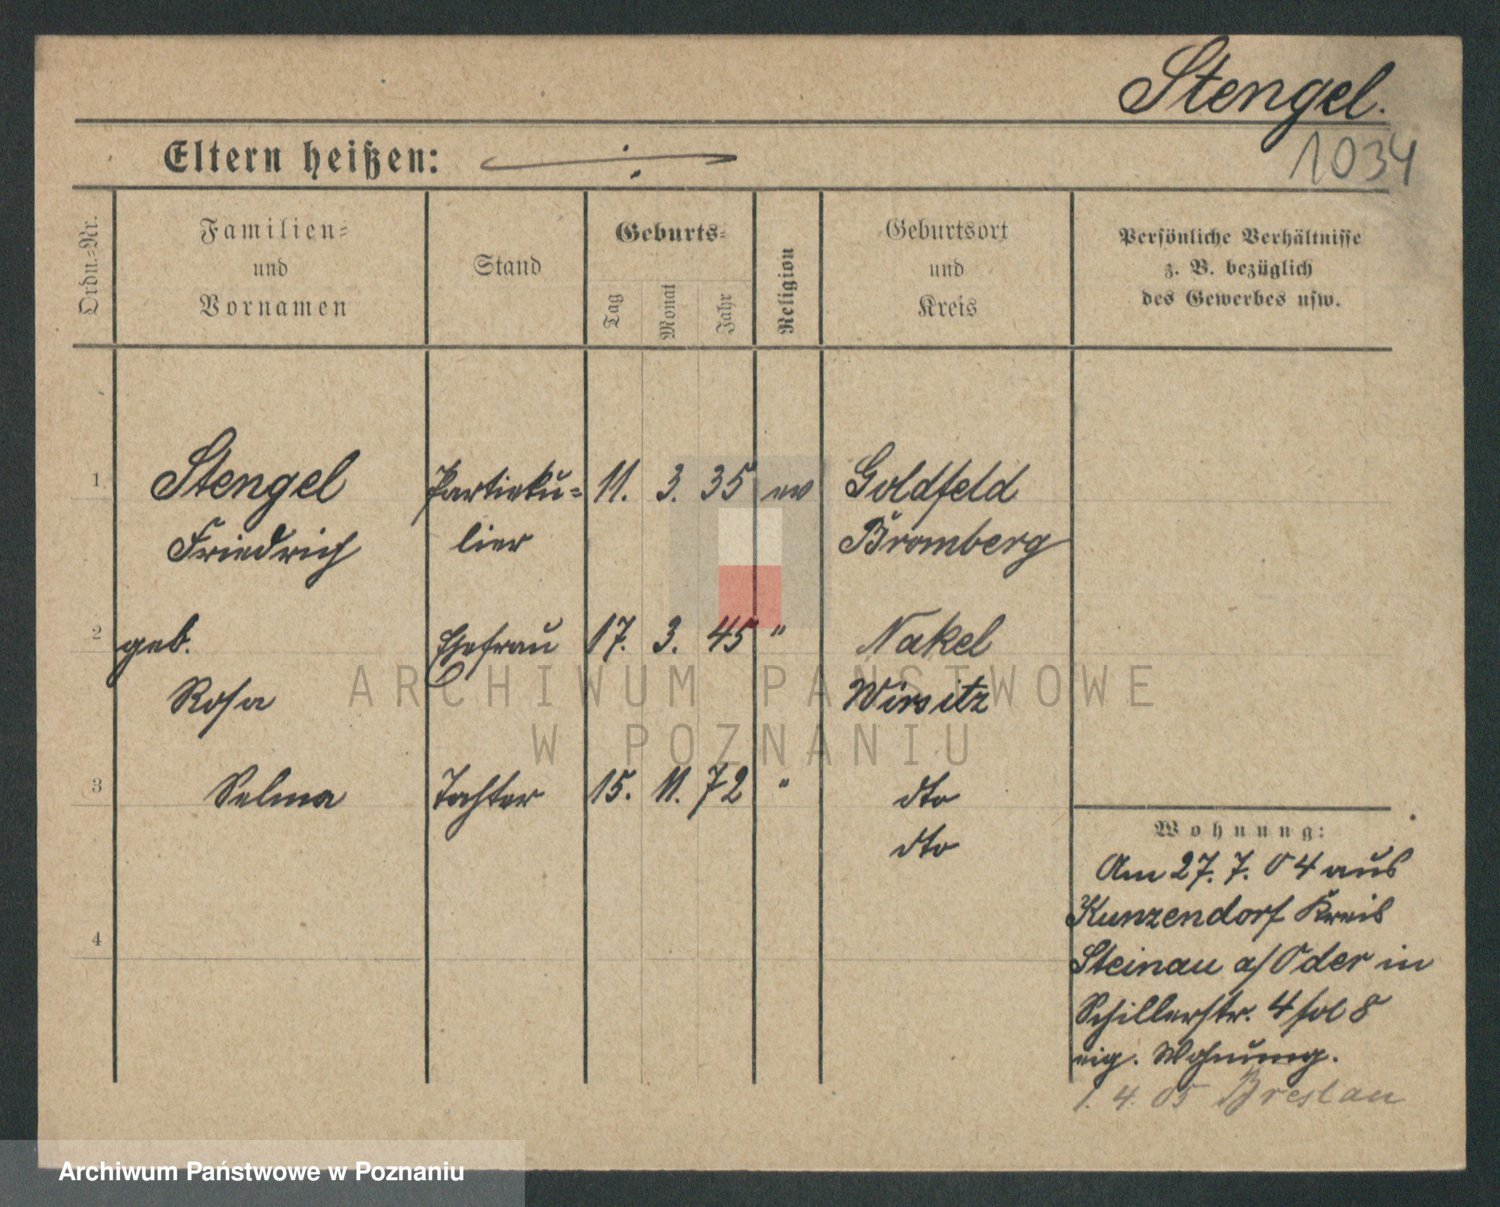 Stengel.
1034
Eltern heißen:
Ordn.-Nr.
Familien-
und
Vornamen
Stand
Geburts-
Tag
Monat
Jahr
Religion
Geburtsort
und
Kreis
Persönliche Verhältnisse
z. B. bezüglich
des Gewerbes usw.
1 Stengel Partiku= 11. 3. 35 ev Goldfeld
Friedrich lier Bromberg
2 geb. Ehefrau 17. 3. 45 " Nakel
Rosa Wirsitz
3 Selma Tochter 15. 11. 72 " dto
dto
4
Wohnung:
Am 27. 7. 04 aus
Kunzendorf Kreis
Steinau a/Oder in
Schillerstr. 4 8
eig. Wohnung.
1. 4. 05 Breslau
ARCHIWUM PAŃSTWOWE
W POZNANIU
Archiwum Państwowe w Poznaniu